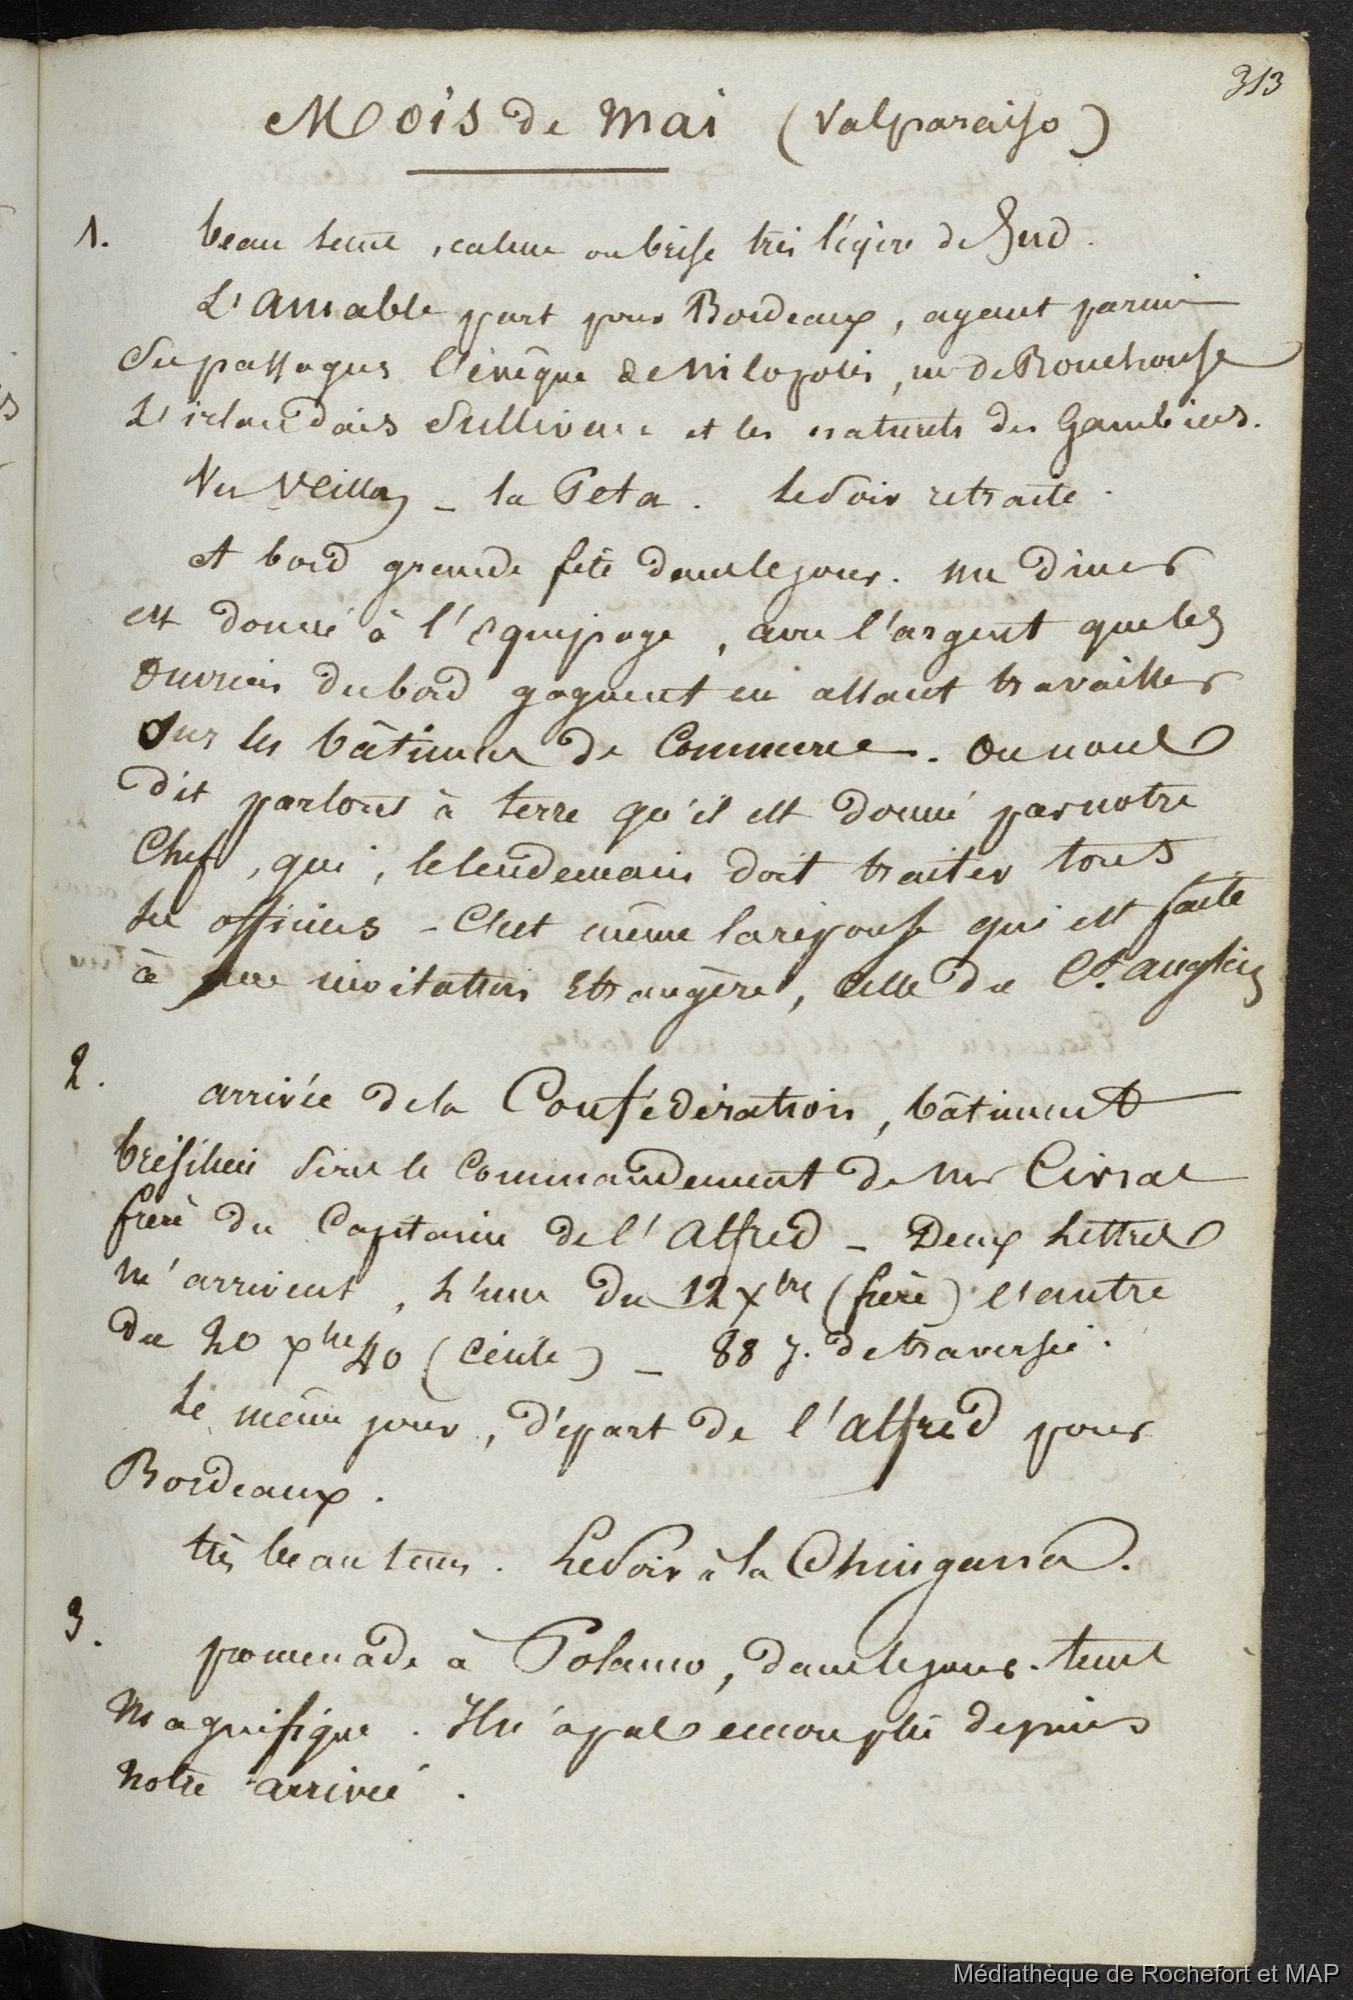 313
Mois de Mai (Valparaiso)
1. beau tems, calme ou brise très légère de Sud.
L'Aimable part pour Bordeaux, ayant parmi
ses passagers l'évêque de Nilopolis, mr de Rouchouse
L'irlandais Sullivan et les naturels des Gambiers.
Vu Veillon – la Peta. Le soir retraite.
A bord grande fête dans le jour. Un diner
est donné à l'équipage, avec l'argent que les
ouvriers du bord gagnent en allant travailler
sur les bâtimens de Commerce. On nous
dit partout à terre qu'il est donné par notre
Chef, qui, le lendemain doit traiter tous
les officiers – C'est même la réponse qui est faite
à une invitation Etrangère, celle du Ct. anglais
2. arrivée de la Confédération, bâtiment
brésilien sous le Commandement de Mr Civrac
frère du Capitaine de l'Alfred – Deux Lettres
m'arrivent, L'une du 12 xbre (frère) l'autre
du 20 xbre 40 (Cécile) – 88 j. de traversée.
Le même jour, départ de l'Alfred pour
Bordeaux.
très beau tems. Le soir à la Chingana.
3. promenade à Polanco, dans le jour. tems
Magnifique. Il n'a pas encore plu depuis
notre arrivée.
Médiathèque de Rochefort et MAP